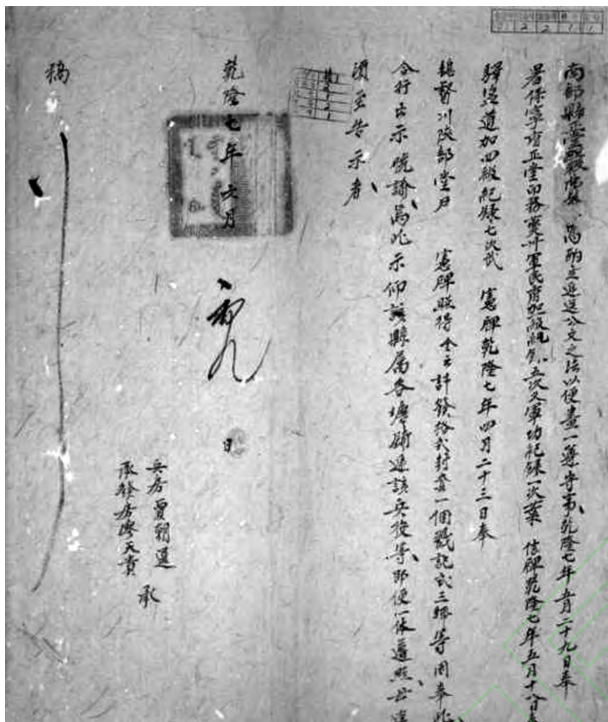 南部縣爲嚴飭事、爲酌定遞送公文之法以便畫一遵守事、乾隆七年五月二十九日奉
署保寧府正堂印務 軍民府加級紀錄五次又軍功紀錄一次葉 信牌乾隆七年五月十八日奉
驛塩道加四級紀錄七次武 憲牌乾隆七年四月二十三日奉
總督川陝部堂尹 憲牌照得 云云計發給式封套一個戳記式三師等因奉此
合行出示曉諭爲此示仰該縣屬各塘鋪遞該兵役等即便一体遵照毋違
須至告示者
乾隆七年 六月 初九 日
兵房 賈朝選
承發房 廖天貴 承
稿